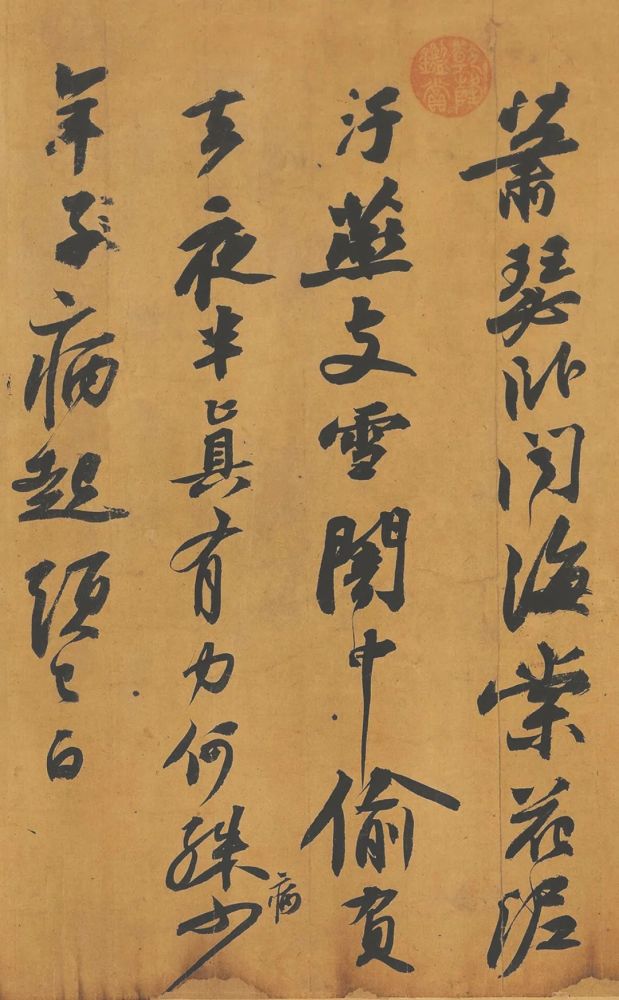 蕭瑟臥聞海棠花泥
汙燕支雪闇中偷負
去夜半真有力何殊病少
年子病起頭已白
乾隆鑑賞